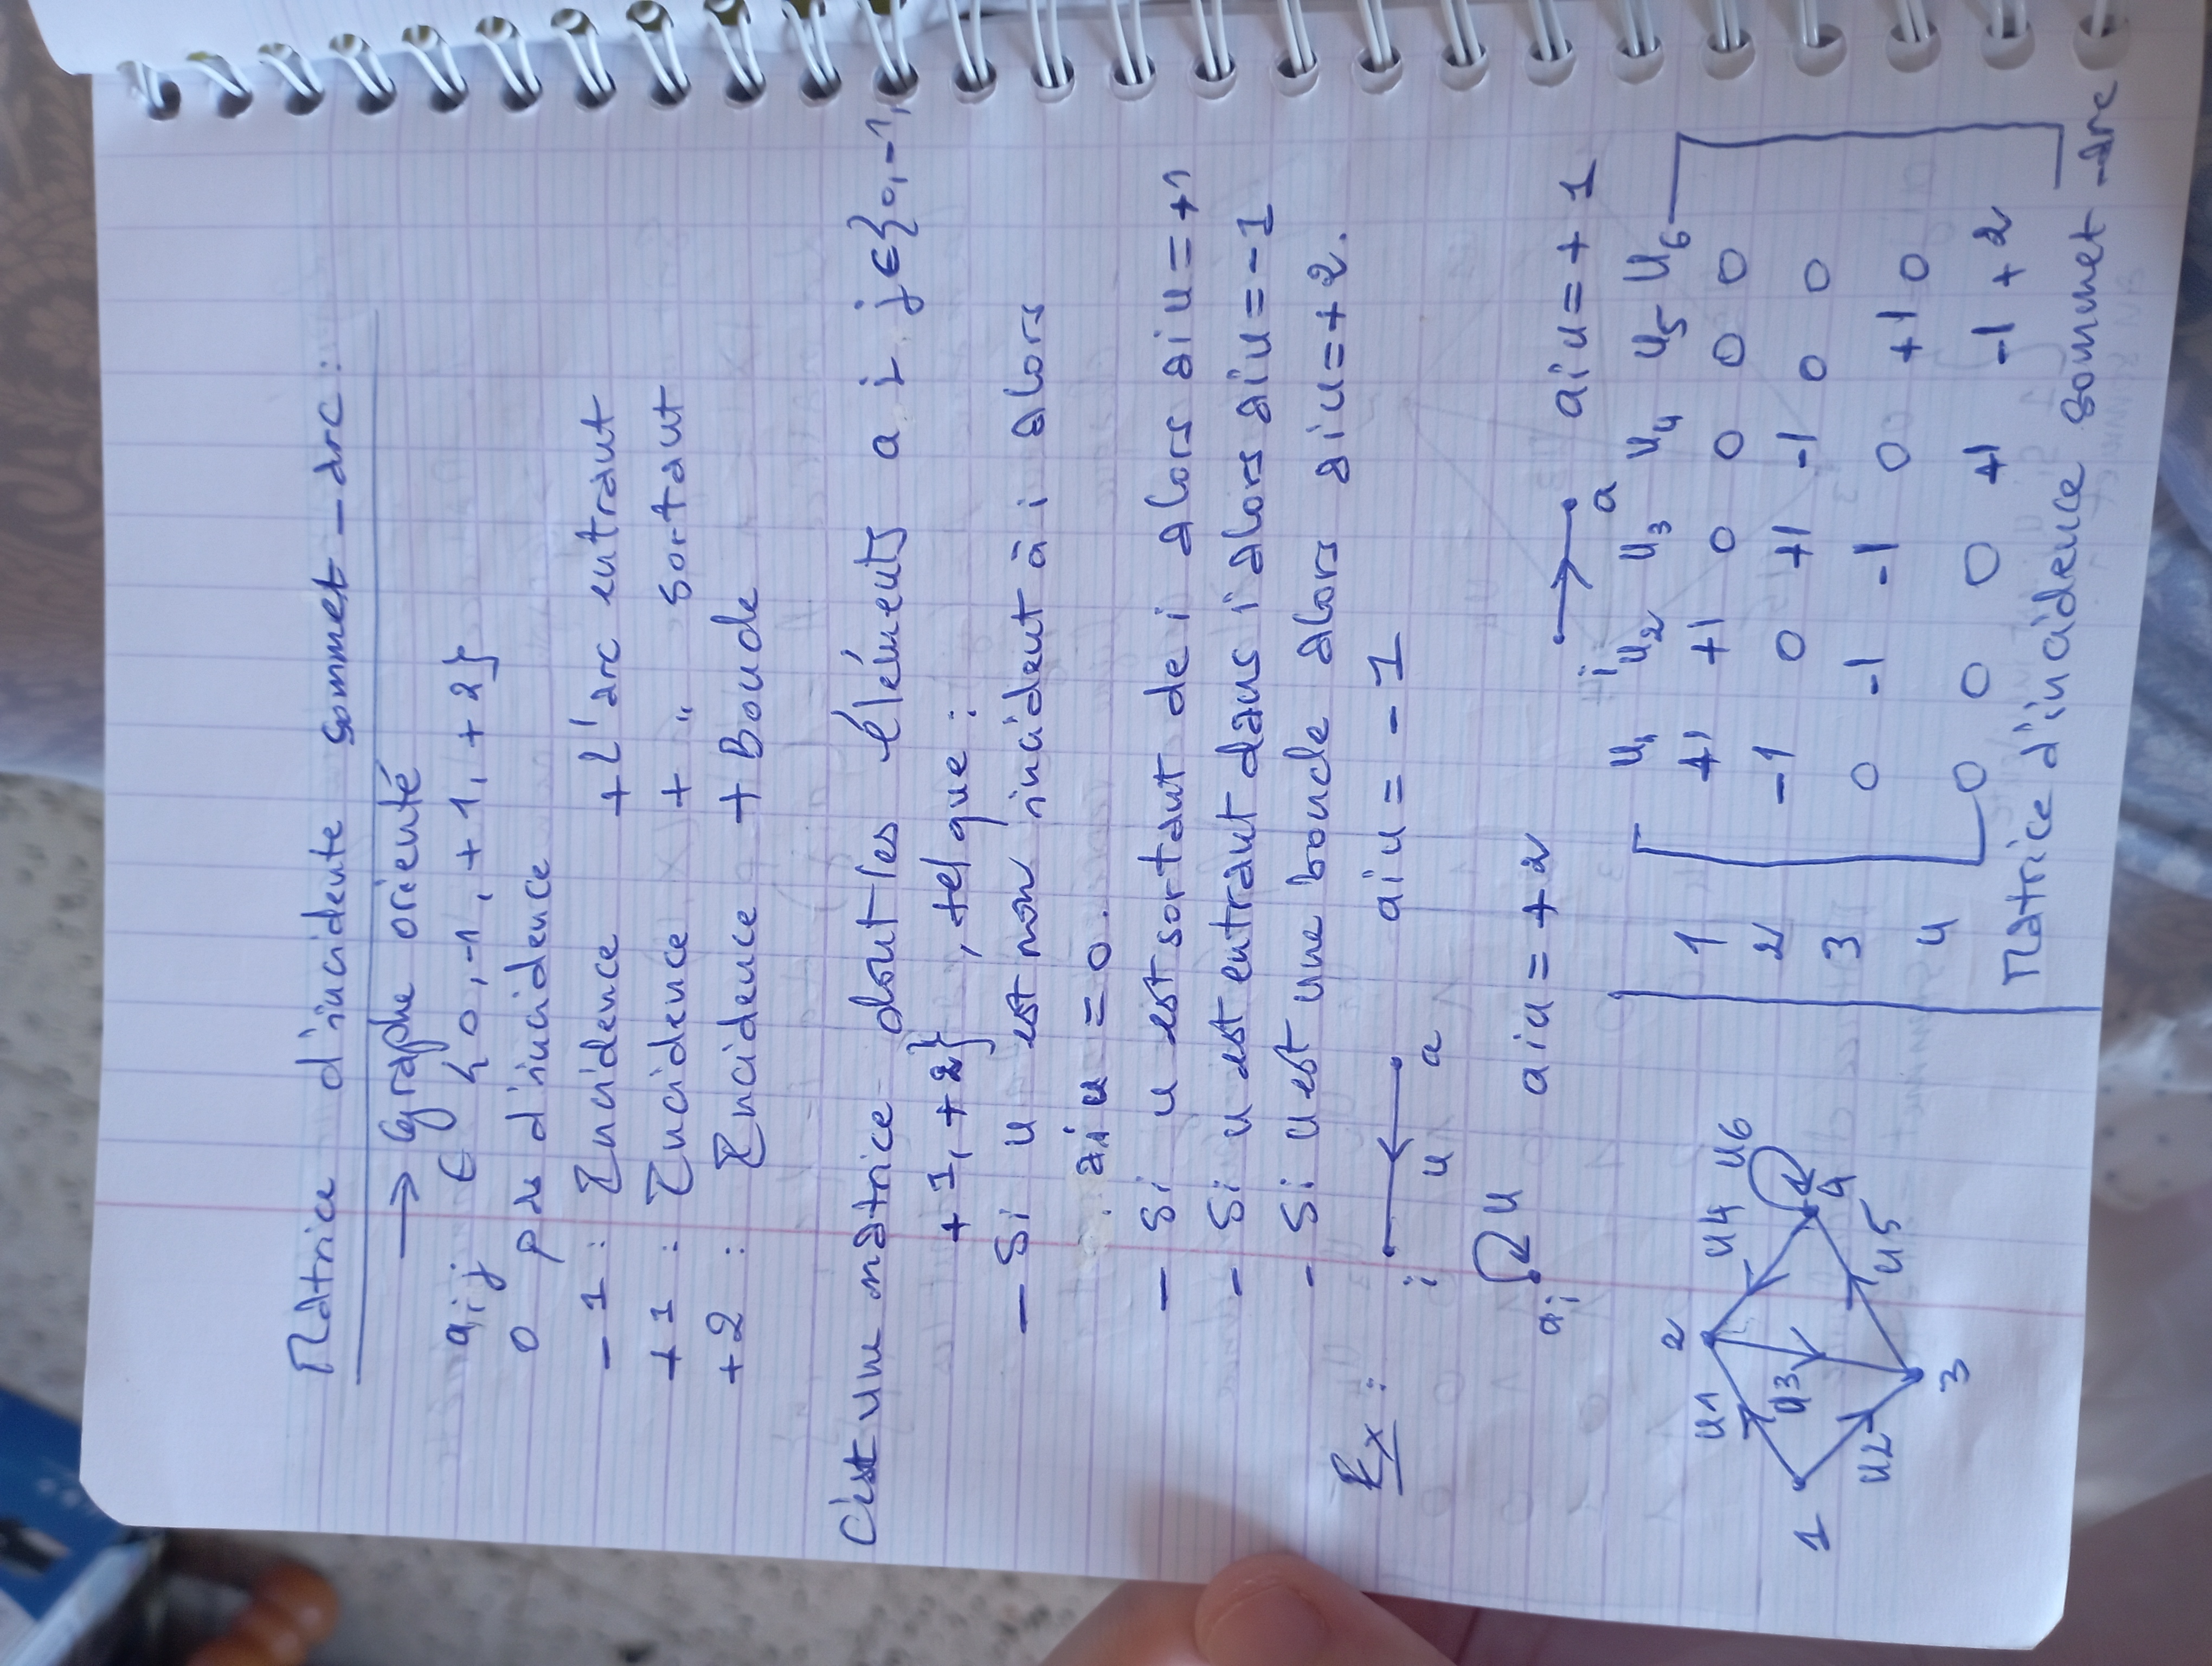 Matrice d'incidente sommet-arc :
→ Graphe orienté
aij ∈ {0, -1, +1, +2}
0 pas d'incidence
-1 : Incidence + l'arc entrant
+1 : Incidence + " sortant
+2 : Incidence + Boucle
C'est une matrice dont les éléments a i j ∈ {0, -1,
+1, +2}, tel que :
- Si u est non incident à i alors
aiu = 0.
- Si u est sortant de i alors aiu = +1
- Si u est entrant dans i alors aiu = -1
- Si u est une boucle alors aiu = +2.
Ex :
i u a aiu = -1
i a aiu = +1
ai u aiu = +2
1 2 3 4
u1 u2 u3 u4 u5 u6
u1 u2 u3 u4 u5 u6
1 +1 +1 0 0 0 0
2 -1 0 +1 -1 0 0
3 0 -1 -1 0 +1 0
4 0 0 0 +1 -1 +2
Matrice d'incidence sommet-arc